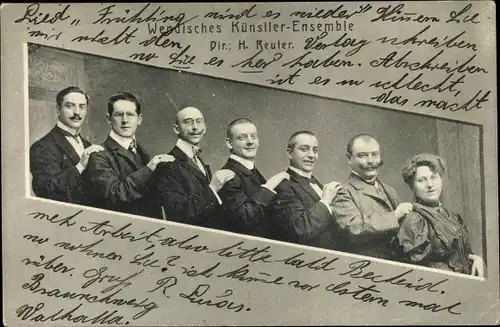 Lied „Frühling wird es wieder" Können Sie
Wendisches Künstler-Ensemble
mir nicht den Verlag schreiben
Dir.: H. Reuter.
wo Sie es her haben. Abschreiben
ist es zu schlecht,
das macht
mehr Arbeit, also bitte bald Bescheid.
wo wohnen Sie? ich käme vor Ostern mal
rüber. Gruß R. Lucas.
Braunschweig
Walhalla.